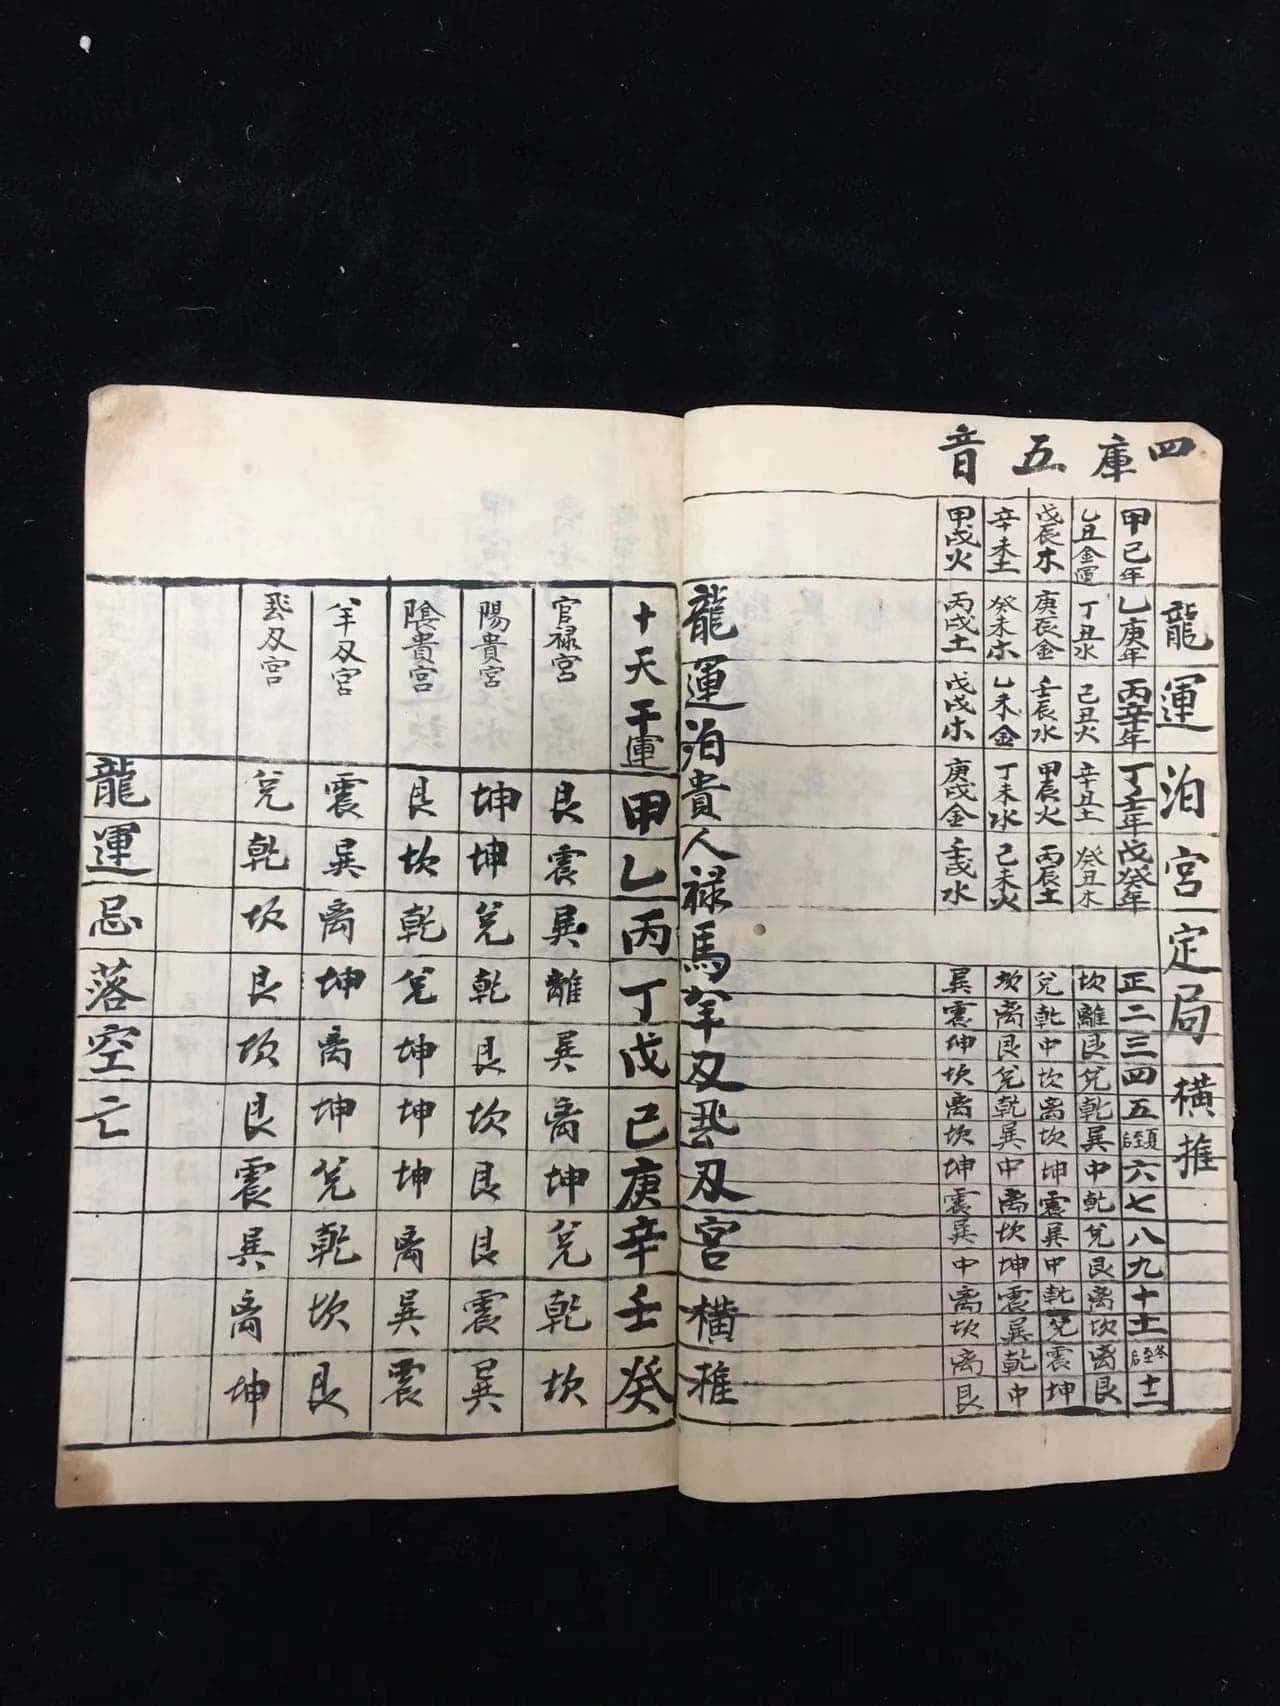 四庫五音
龍運泊宮定局橫推
甲己年 乙庚年 丙辛年 丁壬年 戊癸年
乙丑金運 丁丑水 己丑火 辛丑土 癸丑木
戊辰木 庚辰金 壬辰水 甲辰火 丙辰土
辛未土 癸未木 乙未金 丁未水 己未火
甲戌火 丙戌土 戊戌木 庚戌金 壬戌水
正二三四五夏至后六七八九十十一冬至后十二
坎離艮兌乾巽中乾兌艮离坎离艮
兌乾中坎离坎坤震巽中乾兌震坤
坎离艮兌乾巽中离坎坤震巽乾中
巽震坤坎离坎坤震巽中离坎离艮
龍運泊貴人禄馬羊刃飛刃宮橫推
十天干運甲乙丙丁戊己庚辛壬癸
官禄宮艮震巽離巽离坤兌乾坎
陽貴宮坤坤兌乾艮坎艮艮震巽
陰貴宮艮坎乾兌坤坤坤离巽震
羊刃宮震巽离坤离坤兌乾坎艮
飛刃宮兌乾坎艮坎艮震巽离坤
龍運忌落空亡